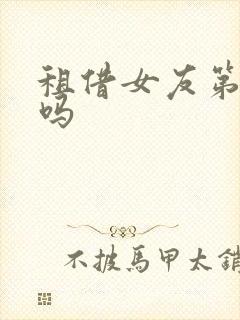 租借女友第
吗
不披馬甲太銷